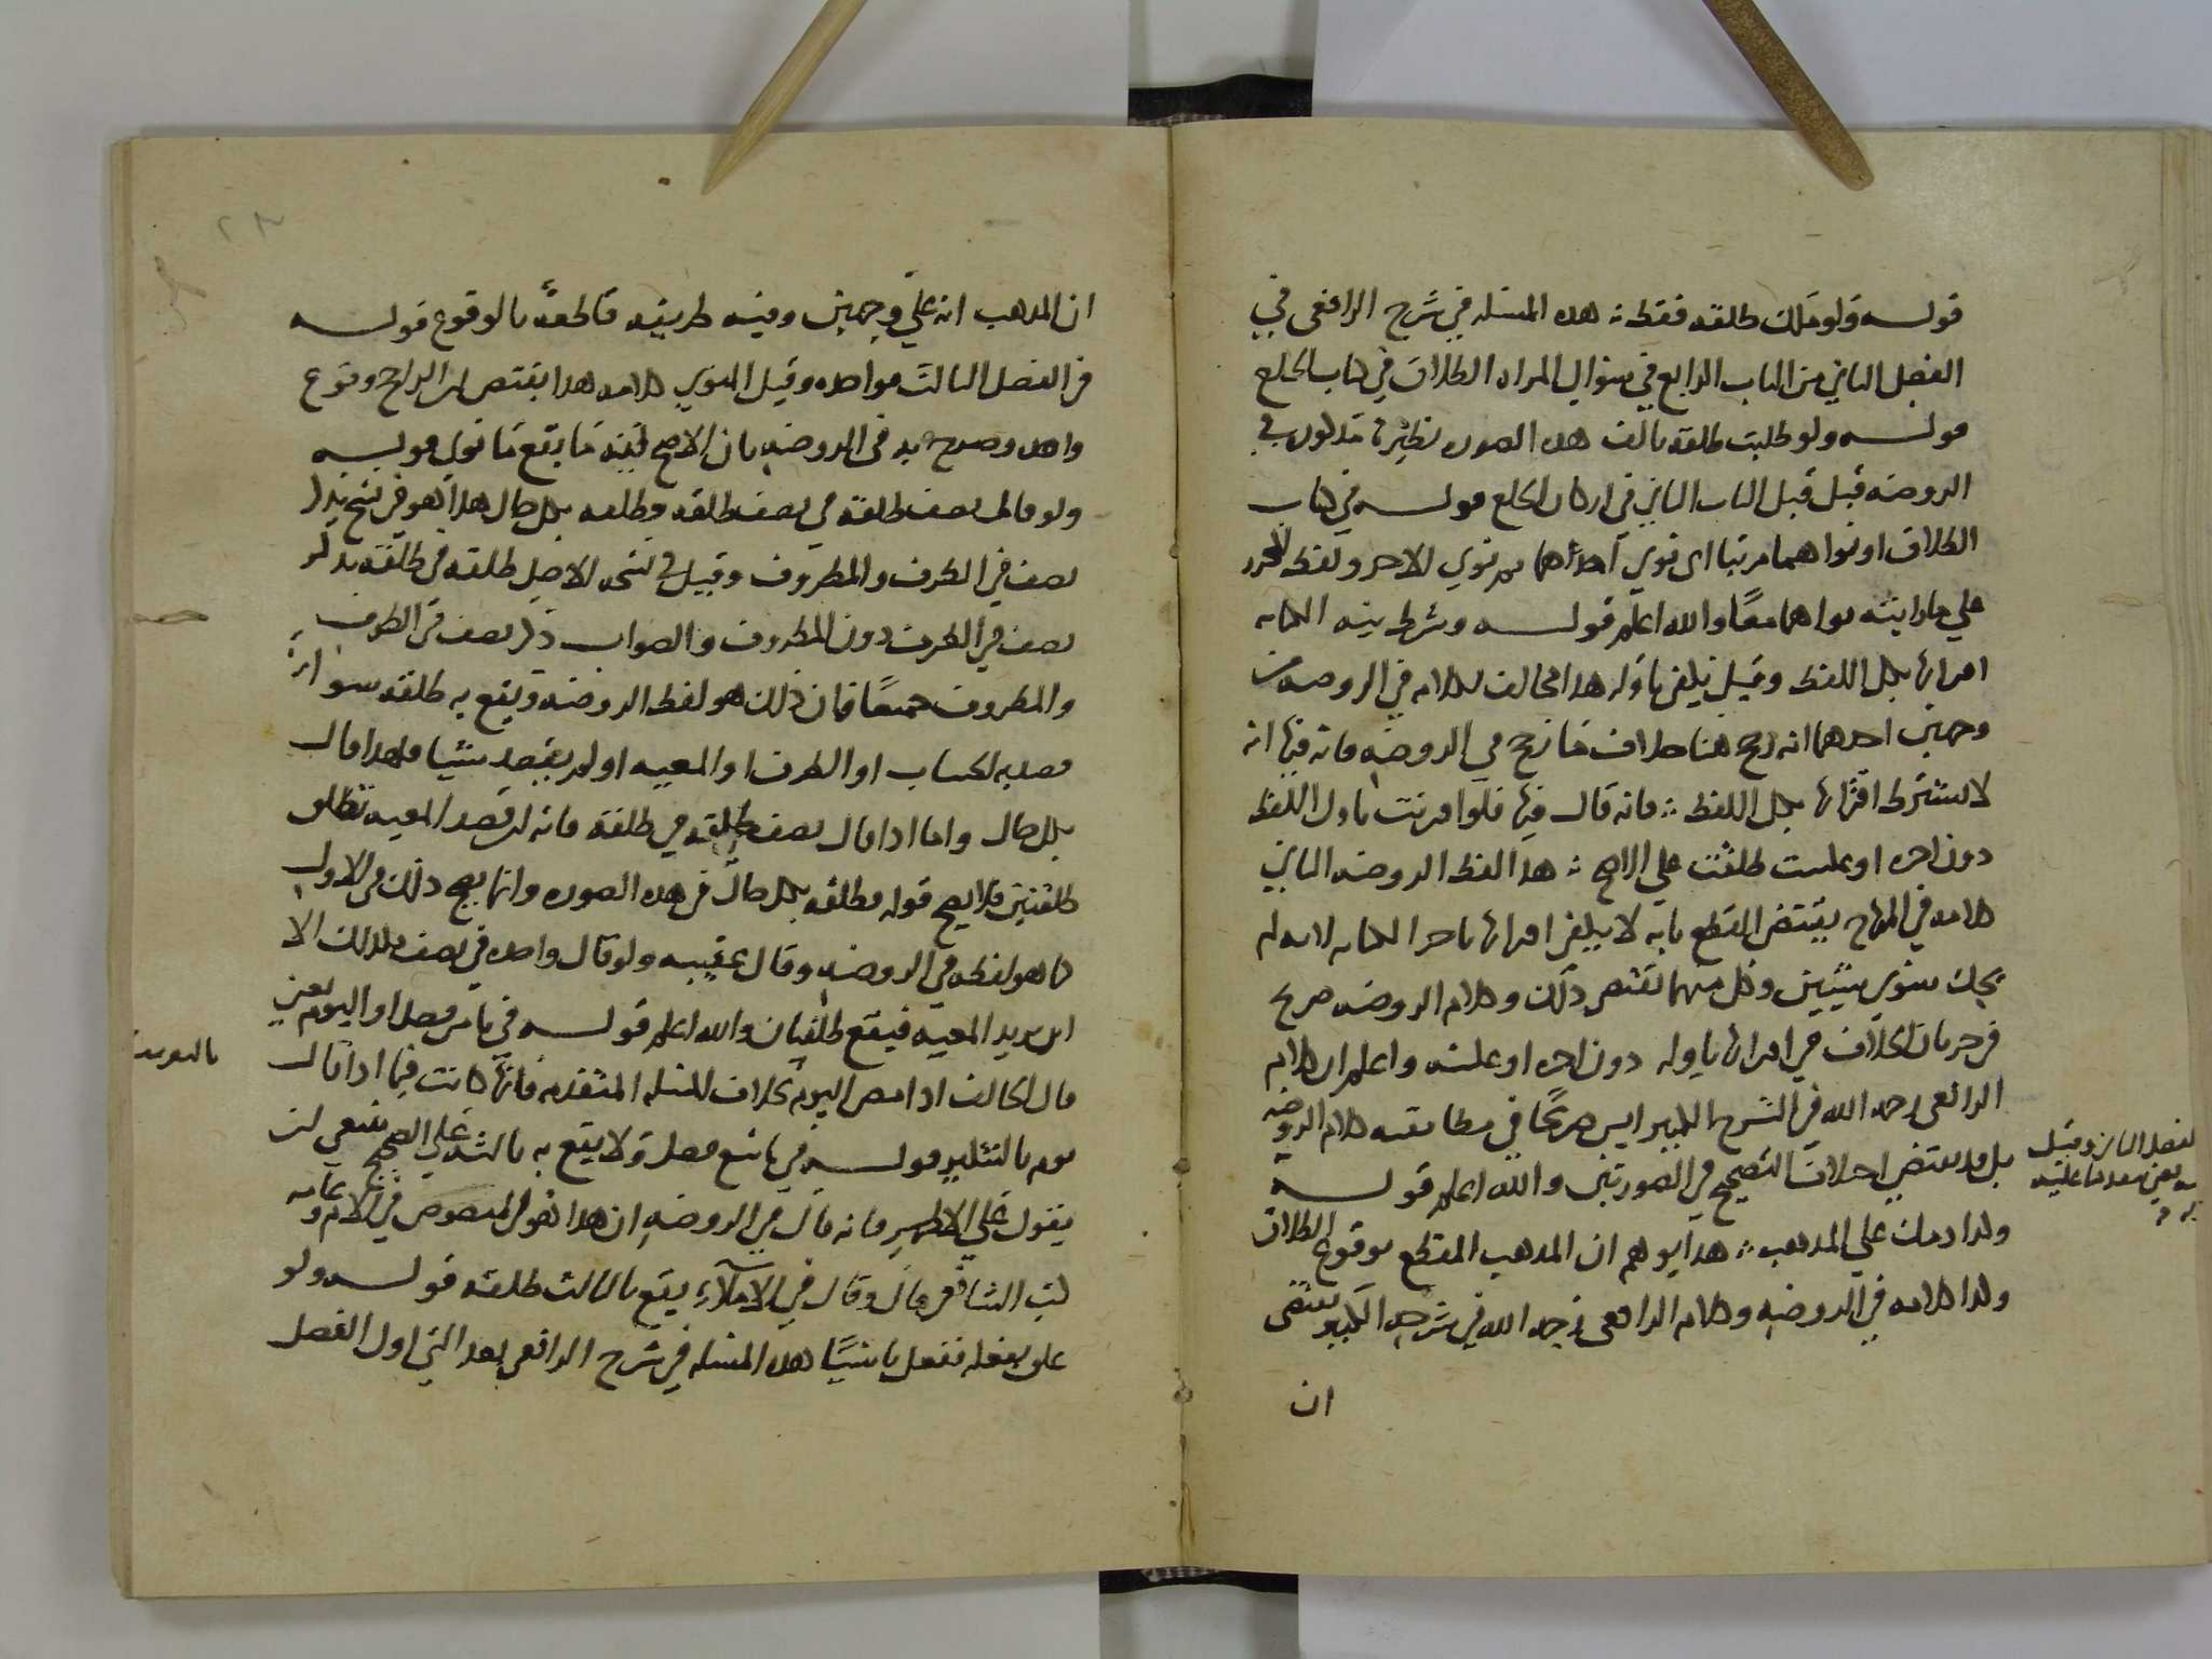 قوله ولو ملك طلقه فقط هذه المسئله في شرح الرافعي في
الفصل الثاني من الباب الرابع في سؤال المراه الطلاق في كتاب الخلع
قوله ولو طلبت طلقه بالف هذه الصوره نظيرة مذكورة في
الروضه قبيل قبيل الباب الثاني في اركان الخلع قوله في كتاب
الطلاق او نواهما مرتبا اي نوي احداهما ثم نوي الاخر ولفظ المحرر
علي ما رايته نواهما معًا والله اعلم قوله وشرط نيه الكنايه
اقترانها بكل اللفظ وقيل يكفي باوله هذا مخالف لكلامه في الروضه من
وجهين احدهما انه رجح هنا خلاف ما رجح في الروضه فانه فيها انه
لا يشترط اقترانها بكل اللفظ فانه قال فيها فلو اقترنت باول اللفظ
دون اخره او عكست طلقت علي الاصح هذا لفظ الروضه الثاني
كلامه في المنهاج يقتضي القطع بانه لا يكفي اقترانها باخر الكنايه لانه لم
يحك سوي شيئين وكل منهما يقتضي ذلك وكلام الروضه صريح
في جريان الخلاف في اقترانها باوله دون اخره او عكسه واعلم ان كلام
الرافعي رحمه الله في الشرح الكبير ليس صريحًا في مطابقه كلام الروضه
بل قد يقتضي اختلاف التصحيح في الصورتين والله اعلم قوله
وكذا دمك علي المذهب هذا يوهم ان المذهب القطع بوقوع الطلاق
وكذا كلامه في الروضه وكلام الرافعي رحمه الله في شرحه الكبير يقتضي
ان
الفصل الثاني وقيل
ان المذهب انه علي وجهين وفيه طريقه قاطعةٌ بالوقوع قوله
في الفصل الثالث فواحده وقيل المنوي كلامه هذا يقتضي ان الراجح وقوع
واحده وصرح به في الروضه بان الاصح انه يقع ما نوي قوله
ولو قال نصف طلقه في نصف طلقه فطلقه بكل حال هذا هو في نسخ بذكر
نصف في الظرف والمظروف وقيل في نسخه الاصل طلقه في طلقه بذكر
نصف في الظرف دون المظروف والصواب ذكر نصف في الظرف
والمظروف جميعًا فان ذلك هو لفظ الروضه ويقع به طلقه سوا
قصد به الحساب او الظرف او المعيه او لم يقصد شيئا فلهذا قال
بكل حال واما اذا قال نصف طلقه في طلقه فانه لو قصد المعيه تطلق
طلقتين فلا يصح قوله فطلقه بكل حال في هذه الصوره وانما يصح ذلك في الاول
كما هو لفظه في الروضه وقال عقيبه ولو قال واحده في نصف فكذلك الا
ان يريد المعيه فيقع طلقتان والله اعلم قوله في ثامن فصل او اليوم يعني
قال الحالف اذا مضي اليوم بخلاف المسئله المتقدمه فانها كانت فيما اذا قال
يوم بالتنكير قوله في تاسع فصل ولا يقع به بالشك علي الصحيح ينبغي ان
يقول علي الاظهر فانه قال في الروضه ان هذا هو المنصوص في الام وعامه
كتب الشافعي قال وقال في الاملاء يقع بالثالث طلقه قوله ولو
علق بفعله ففعل ناسيًا هذه المسئله في شرح الرافعي بعد التي اول الفصل